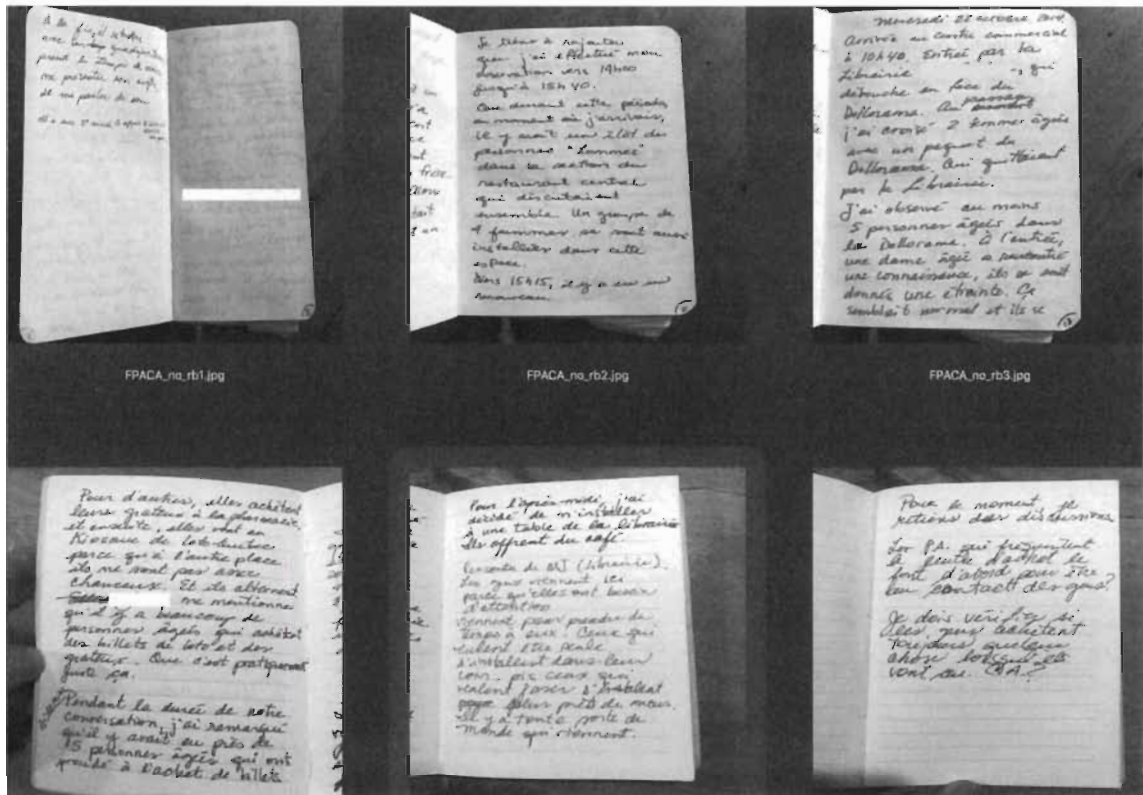 À la fin,
avec
prend le temps de
me présenter son
et me parler de son
Je tiens à rajouter
que j'ai effectué mon
observation vers 14h00
jusqu'à 15h40.
Car durant cette période,
au moment où j'arrivais,
il y avait un îlot de
personnes "hommes"
dans la section du
restaurant central
qui discutaient
ensemble. Un groupe de
4 femmes se sont aussi
installées dans cette
espace.
Vers 15h15, il y a eu un
nouveau
Mercredi 22 octobre
Arrivée au centre commercial
à 10h40. Entrée par la
Librairie ", qui
débouche en face du
Dollorama. Au
j'ai croisé 2 femmes âgées
avec un paquet du
Dollorama. Qui quittaient
par la Librairie.
J'ai observé au moins
5 personnes âgées dans
le Dollorama. À l'entrée,
une dame âgée a rencontré
une connaissance, ils se sont
données une étreinte. Ça
semblait normal et ils se
FPACA_no_rb1.jpg
FPACA_no_rb2.jpg
FPACA_no_rb3.jpg
Pour d'autres, elles achètent
leurs gratteux à la pharmacie,
et ensuite, elles vont au
Kiosque de loto-québec
parce qu'à l'autre place
ils ne sont pas assez
chanceux. Et ils alternent
me mentionne
qu'il y a beaucoup de
personnes âgées qui achètent
des billets de loto et des
gratteux. Que c'est pratiquement
juste ça.
Pendant la durée de notre
conversation, j'ai remarqué
qu'il y avait eu près de
15 personnes âgées qui ont
procédé à l'achat de billets
Pour l'après-midi, j'ai
décidé de m'installer
à une table de la librairie
Ils offrent du café
(librairie).
Les gens viennent ici
parce qu'elles ont besoin
d'attention
viennent pour prendre du
temps à eux. Ceux qui
veulent être seuls
s'installent dans leur
coin. pis ceux qui
veulent jaser s'installent
plus près de nous.
Il y a toute sorte de
monde qui viennent.
Pour le moment, je
retiens des discussions
Les P.A. qui fréquentent
le
font d'abord pour être
en contact des gens?
Je dois vérifier si
les gens achètent
toujours quelque
chose lorsqu'ils
vont au C.A.?